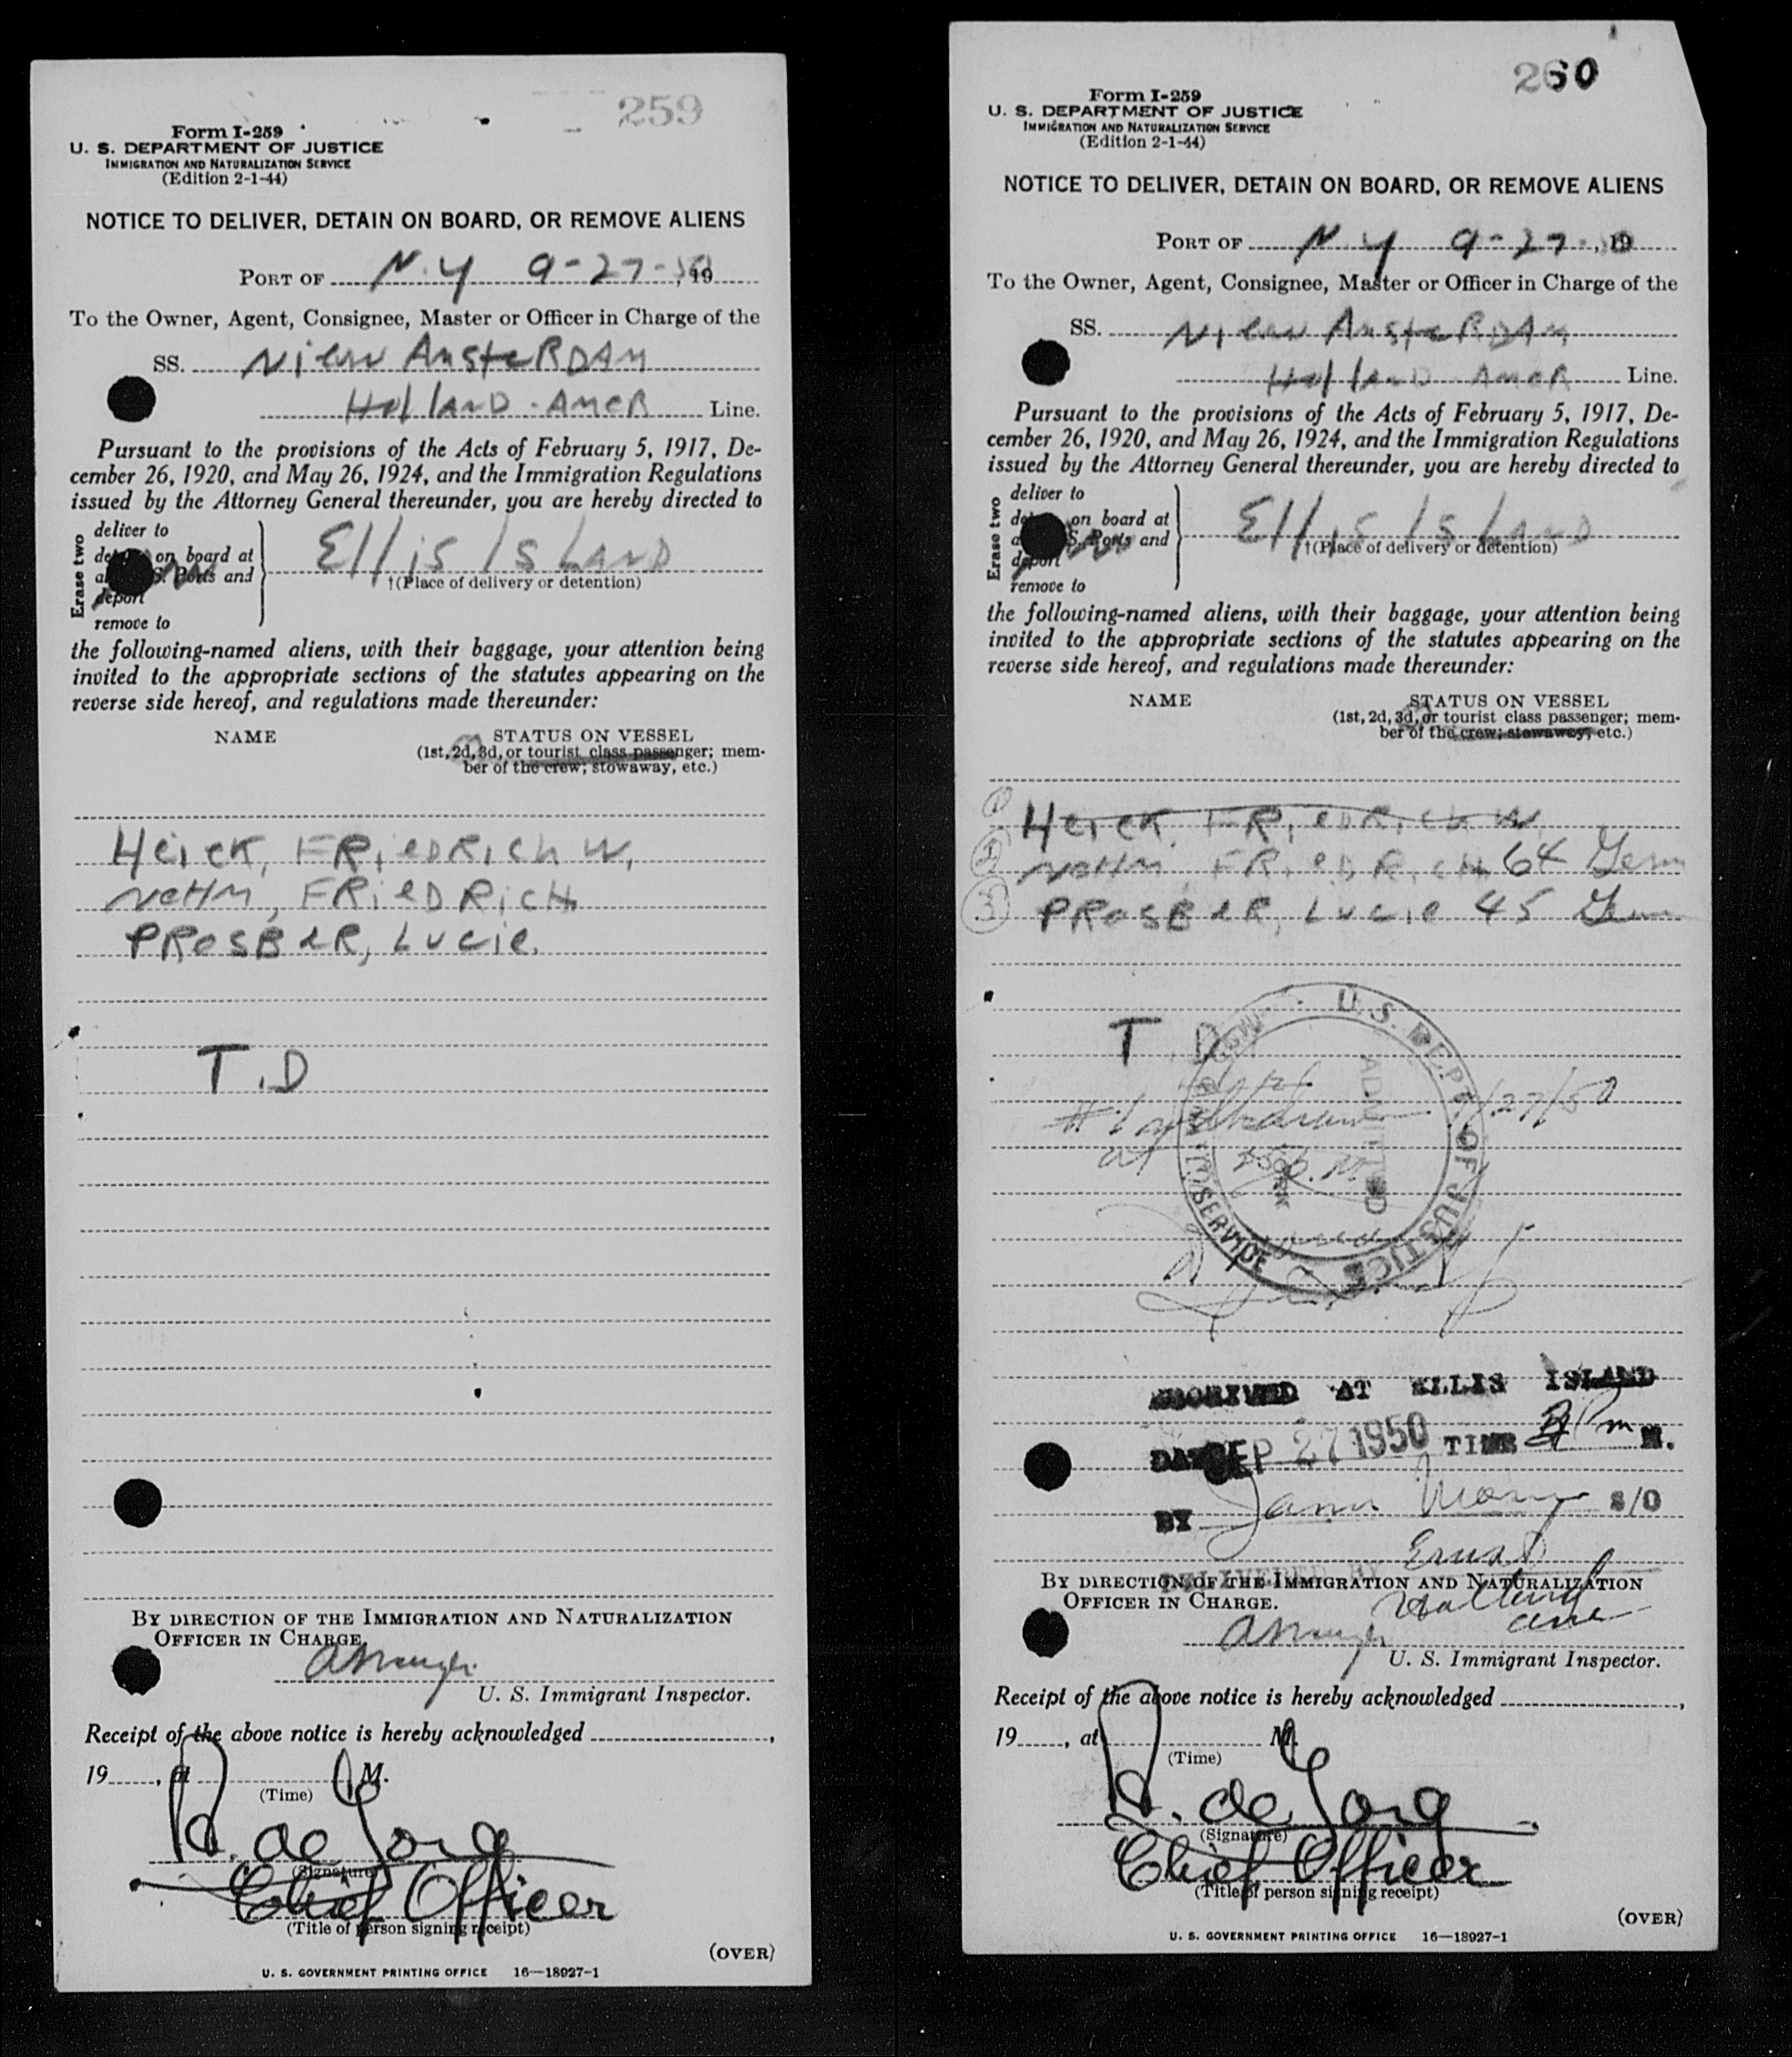 259
Form I-259
U. S. DEPARTMENT OF JUSTICE
IMMIGRATION AND NATURALIZATION SERVICE
(Edition 2-1-44)
NOTICE TO DELIVER, DETAIN ON BOARD, OR REMOVE ALIENS
PORT OF N.Y 9-27-50, 19
To the Owner, Agent, Consignee, Master or Officer in Charge of the
SS. Nieuw AmsteRDAM
HollanD-AmeR Line.
Pursuant to the provisions of the Acts of February 5, 1917, De-
cember 26, 1920, and May 26, 1924, and the Immigration Regulations
issued by the Attorney General thereunder, you are hereby directed to
Erase two
deliver to
on board at
S. Ports and
deport
remove to
Ellis IsLanD
†(Place of delivery or detention)
the following-named aliens, with their baggage, your attention being
invited to the appropriate sections of the statutes appearing on the
reverse side hereof, and regulations made thereunder:
NAME STATUS ON VESSEL
(1st, 2d, 3d, or tourist class passenger; mem-
ber of the crew; stowaway, etc.)
Heick, FRieDRich W,
NeHM, FRieDRicH
PRosBeR, Lucie.
T.D
BY DIRECTION OF THE IMMIGRATION AND NATURALIZATION
OFFICER IN CHARGE.
U. S. Immigrant Inspector.
Receipt of the above notice is hereby acknowledged ,
19 , at M.
(Time)
R. de Jong
(Signature)
Chief Officer
(Title of person signing receipt)
(OVER)
U. S. GOVERNMENT PRINTING OFFICE 16—18927-1
260
Form I-259
U. S. DEPARTMENT OF JUSTICE
IMMIGRATION AND NATURALIZATION SERVICE
(Edition 2-1-44)
NOTICE TO DELIVER, DETAIN ON BOARD, OR REMOVE ALIENS
PORT OF N.Y 9-27-50, 19
To the Owner, Agent, Consignee, Master or Officer in Charge of the
SS. Nieuw AmsteRDAM
HollanD-AmeR Line.
Pursuant to the provisions of the Acts of February 5, 1917, De-
cember 26, 1920, and May 26, 1924, and the Immigration Regulations
issued by the Attorney General thereunder, you are hereby directed to
Erase two
deliver to
on board at
S. Ports and
deport
remove to
Ellis IsLanD
†(Place of delivery or detention)
the following-named aliens, with their baggage, your attention being
invited to the appropriate sections of the statutes appearing on the
reverse side hereof, and regulations made thereunder:
NAME STATUS ON VESSEL
(1st, 2d, 3d, or tourist class passenger; mem-
ber of the crew; stowaway, etc.)
1 Heick, FRieDRich W,
2 NeHM, FRieDRicH 64 Germ
3 PRosBeR, Lucie 45 Germ
T.D
U. S. DEPT. OF JUSTICE
SERVICE
ADMITTED
#1 withdrawn /27/50
at
RECEIVED AT ELLIS ISLAND
DATE SEP 27 1950 TIME PM M.
BY S/O
Ernst
DELIVERED BY
BY DIRECTION OF THE IMMIGRATION AND NATURALIZATION
OFFICER IN CHARGE.
Holland
U. S. Immigrant Inspector.
Receipt of the above notice is hereby acknowledged ,
19 , at M.
(Time)
R. de Jong
(Signature)
Chief Officer
(Title of person signing receipt)
(OVER)
U. S. GOVERNMENT PRINTING OFFICE 16—18927-1